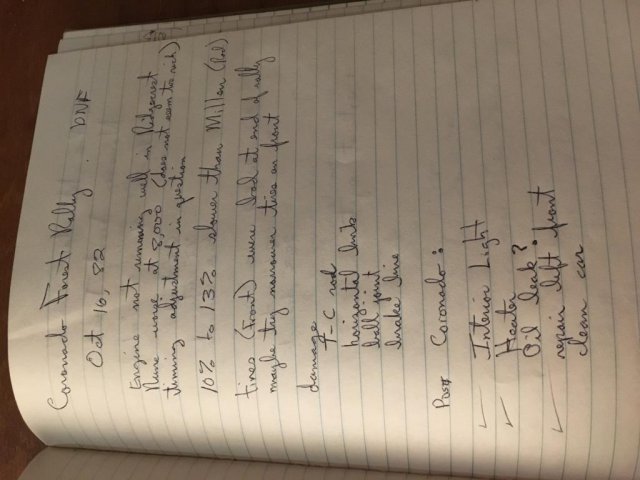 Coronado Forest Rally. DNF
Oct 16, 82
Engine not running well in Ridgecrest
Runs at 8,000 (does not seem too rich)
timing adjustment in question
10% to 13% slower than Millen (Rod)
tires (Front) were bad at end of rally
maybe try narrower tires on front
damage
T-C rod
horizontal link
ball joint
brake line
Post Coronado:
✓ Interior Light
✓ Heater
Oil leak?
✓ repair left front
clean car